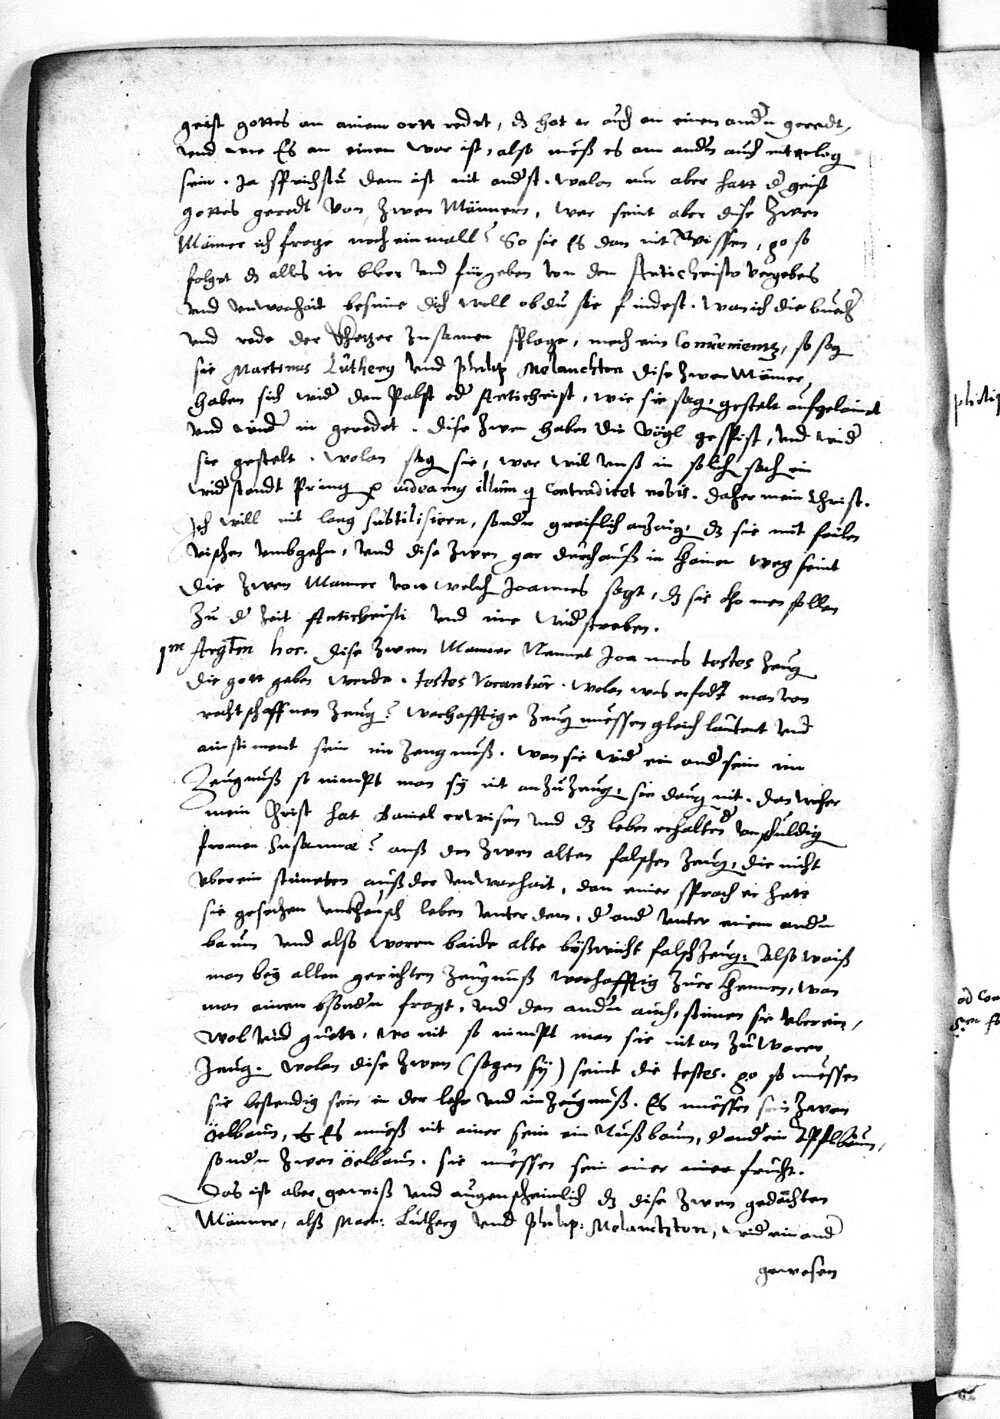 geist gottes an ainem ortt redet, dz hat er auch an einem andn geredt,
und wie Es an einem war ist, also muß es am andn auch nit gelog
sein. Ja sprichstu dem ist nit andst. wolan nun aber hatt d geist
gottes geredt von zwen Männern, wer seint aber dise zwen
Männer ich frage noch ein mall? So sie Es dan nit wissen, so
folget dz alles ir und fürgeben von dem Antichristo vergebes
und unworhait besinne dich woll ob du sie findest. wan ich die buech
und rede der Khetzer zusamen schlage, nach ein Convenientz, so sag
sie Martinus Luthery und Philip Melanchton dise zwen Männer,
haben sich wid den Palst od Antichrist, wie sie sag, gestelt aufgeleinet
und wid in geredet. dise zwen haben die vögl gespist, und wid
sie gestelt. wolan sag sie, wer wil unß in solch sach ein
widstandt illum q contradicet nobis. daher mein Christ.
Ich will nit lang subtilisiern, sondn greiflich anzaig, dz sie mit faulen
vischen umbgehn, und dise zwen gar durchauß in kainen weg seint
die zwen Manner von welch Joannes sagt, dz sie kho men sollen
zu d zeit Antichristi und ime widstreben.
1m Argtm hoc. dise zwen Manner Nennet Joannes testes zeug
die gott geben werde. testes vocantur. wolan was erfodt man von
rechtschaffnen zeug? warhafftige zeug müessen gleich lautent und
ainstiment sein im zeugnuß. wan sie wid ein and sein im
Zeugnuß so nimpt man sy nit an zu zeug, sie daug nit. dan woher
mein Christ hat Daniel erwisen und dz leben erhalten d unschuldig
fromen Susannae? auß den zwen alten falschen zeug, die nicht
uberein stimeten auß der unwarhait, dan einer sprach er hett
sie gesehen unkheusch leben unter dem, d and unter einem andn
baum und also waren baide alte bößwicht falsch zeug. Also waiß
man bey allen gerichten zeugnuß warhafftig zuer khennen, wan
man ainen bsondn fragt, und den andn auch, stimen sie uberein,
wol und guett, wo nit so nimpt man sie nit an zu waren
zeug. wolan dise zwen (sagen sy) seint die testes. so müessen
sie bestendig sein in der lehr und in zeugnuß. Es müessen sein zwen
öelbaum, Es muß nit ainer sein ein Nußbaum, d and ein Apflbaum,
sondn zwen öelbaum. sie müessen sein ainer ainer frucht.
Das ist aber gewiß und augenscheinlich dz dise zwen gedachten
Männer, alß Mart: Luthery und Philip: Melanchton, wid ein and
gewesen